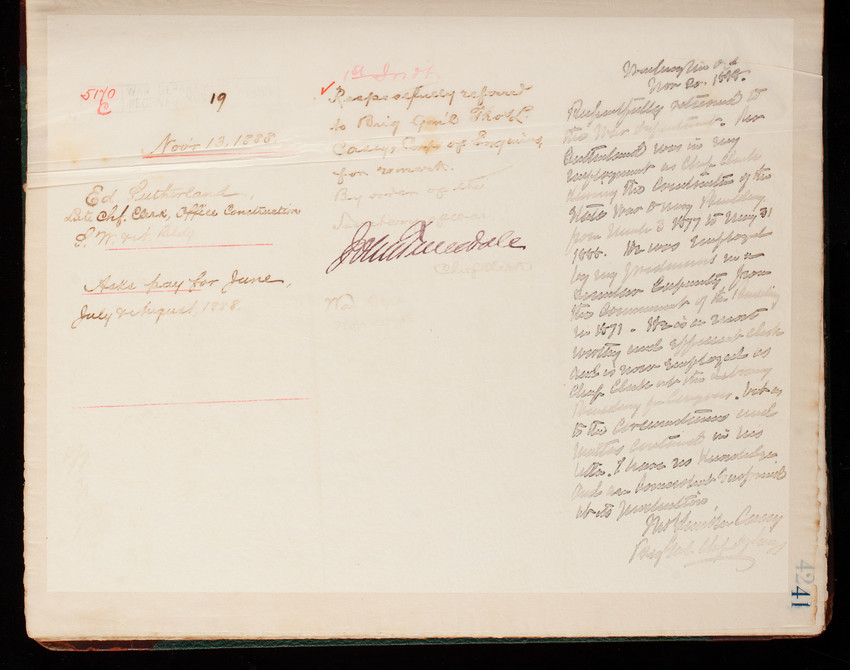 5170
C
19
Nov'r 13, 1888.
Ed. Sutherland,
Late Chf. Clerk, Office Construction
S. W. & N. Bldg
Asks pay for June,
July & August, 1888.
1st Ind't.
Respectfully referred
to Brig. Gen'l Thos. L.
Casey, Corps of Engineers
for remark.
By order of the
Secretary of War:
John Tweedale
Chief Clerk.
War
Washington D.C.
Nov 20. 1888.
Respectfully returned to
the War Department. Mr
Sutherland was in my
employment as Chief Clerk
during the Construction of the
State War & Navy Building
from March 3 1877 to May 31
1888. He was employed
by my predecessors in a
similar capacity from
the commencement of the Building
in 1871. He is a most
worthy and efficient clerk
and is now employed as
Chief Clerk at the Library
Building for Congress, but as
to the circumstances and
matters contained in his
letter, I have no knowledge
and am somewhat surprised
at its production
Thos Lincoln Casey
Brig Genl. Chf of Engrs
4241